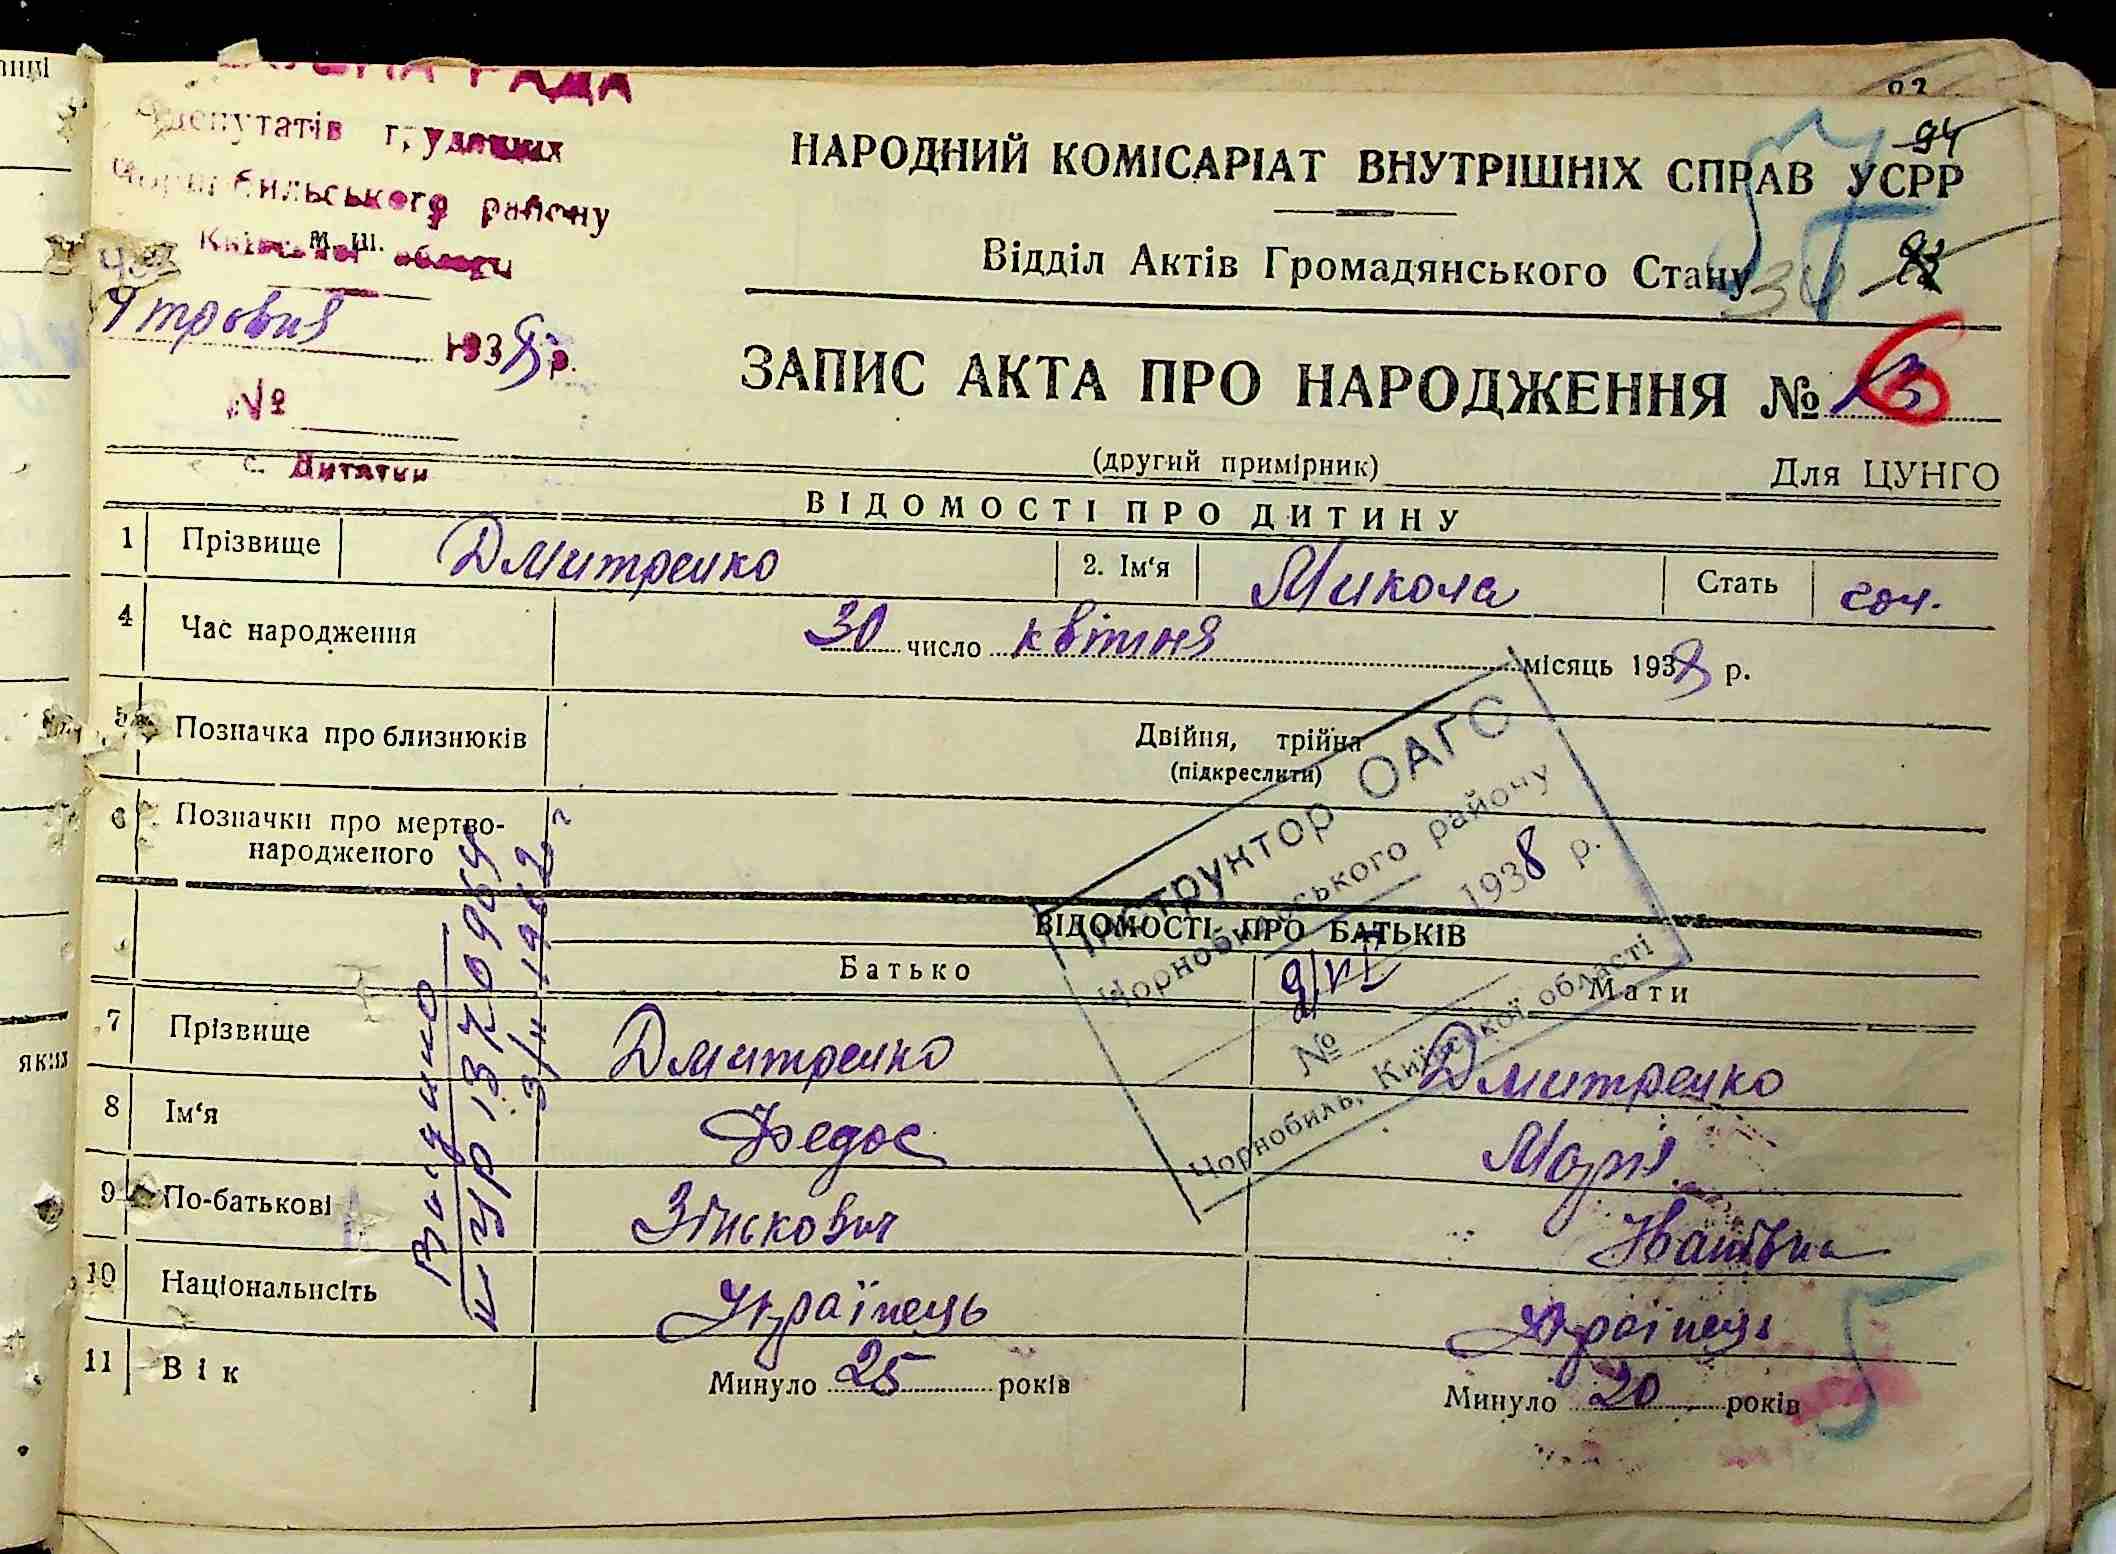 РАДА
депутатів трудящих
Чорнобильського району
Київської області
м. ш.
1938 р.
№
с. Дитятки
94
НАРОДНИЙ КОМІСАРІАТ ВНУТРІШНІХ СПРАВ УСРР
Відділ Актів Громадянського Стану
ЗАПИС АКТА ПРО НАРОДЖЕННЯ №
(другий примірник) Для ЦУНГО
ВІДОМОСТІ ПРО ДИТИНУ
1 Прізвище Дмитренко 2. Ім‘я Микола Стать чол.
4 Час народження 30 число квітня місяць 1938 р.
5 Позначка про близнюків Двійня, трійня
(підкреслити)
6 Позначки про мертво-
народженого
Інструктор ОАГС
Чорнобильського району
1938 р.
№
Чорнобиль, Київської області
ВІДОМОСТІ ПРО БАТЬКІВ
Батько Мати
7 Прізвище Дмитренко Дмитренко
8 Ім‘я Федос Марія
9 По-батькові Іванівна
10 Національність Українець Українець
11 Вік Минуло 25 років Минуло 20 років